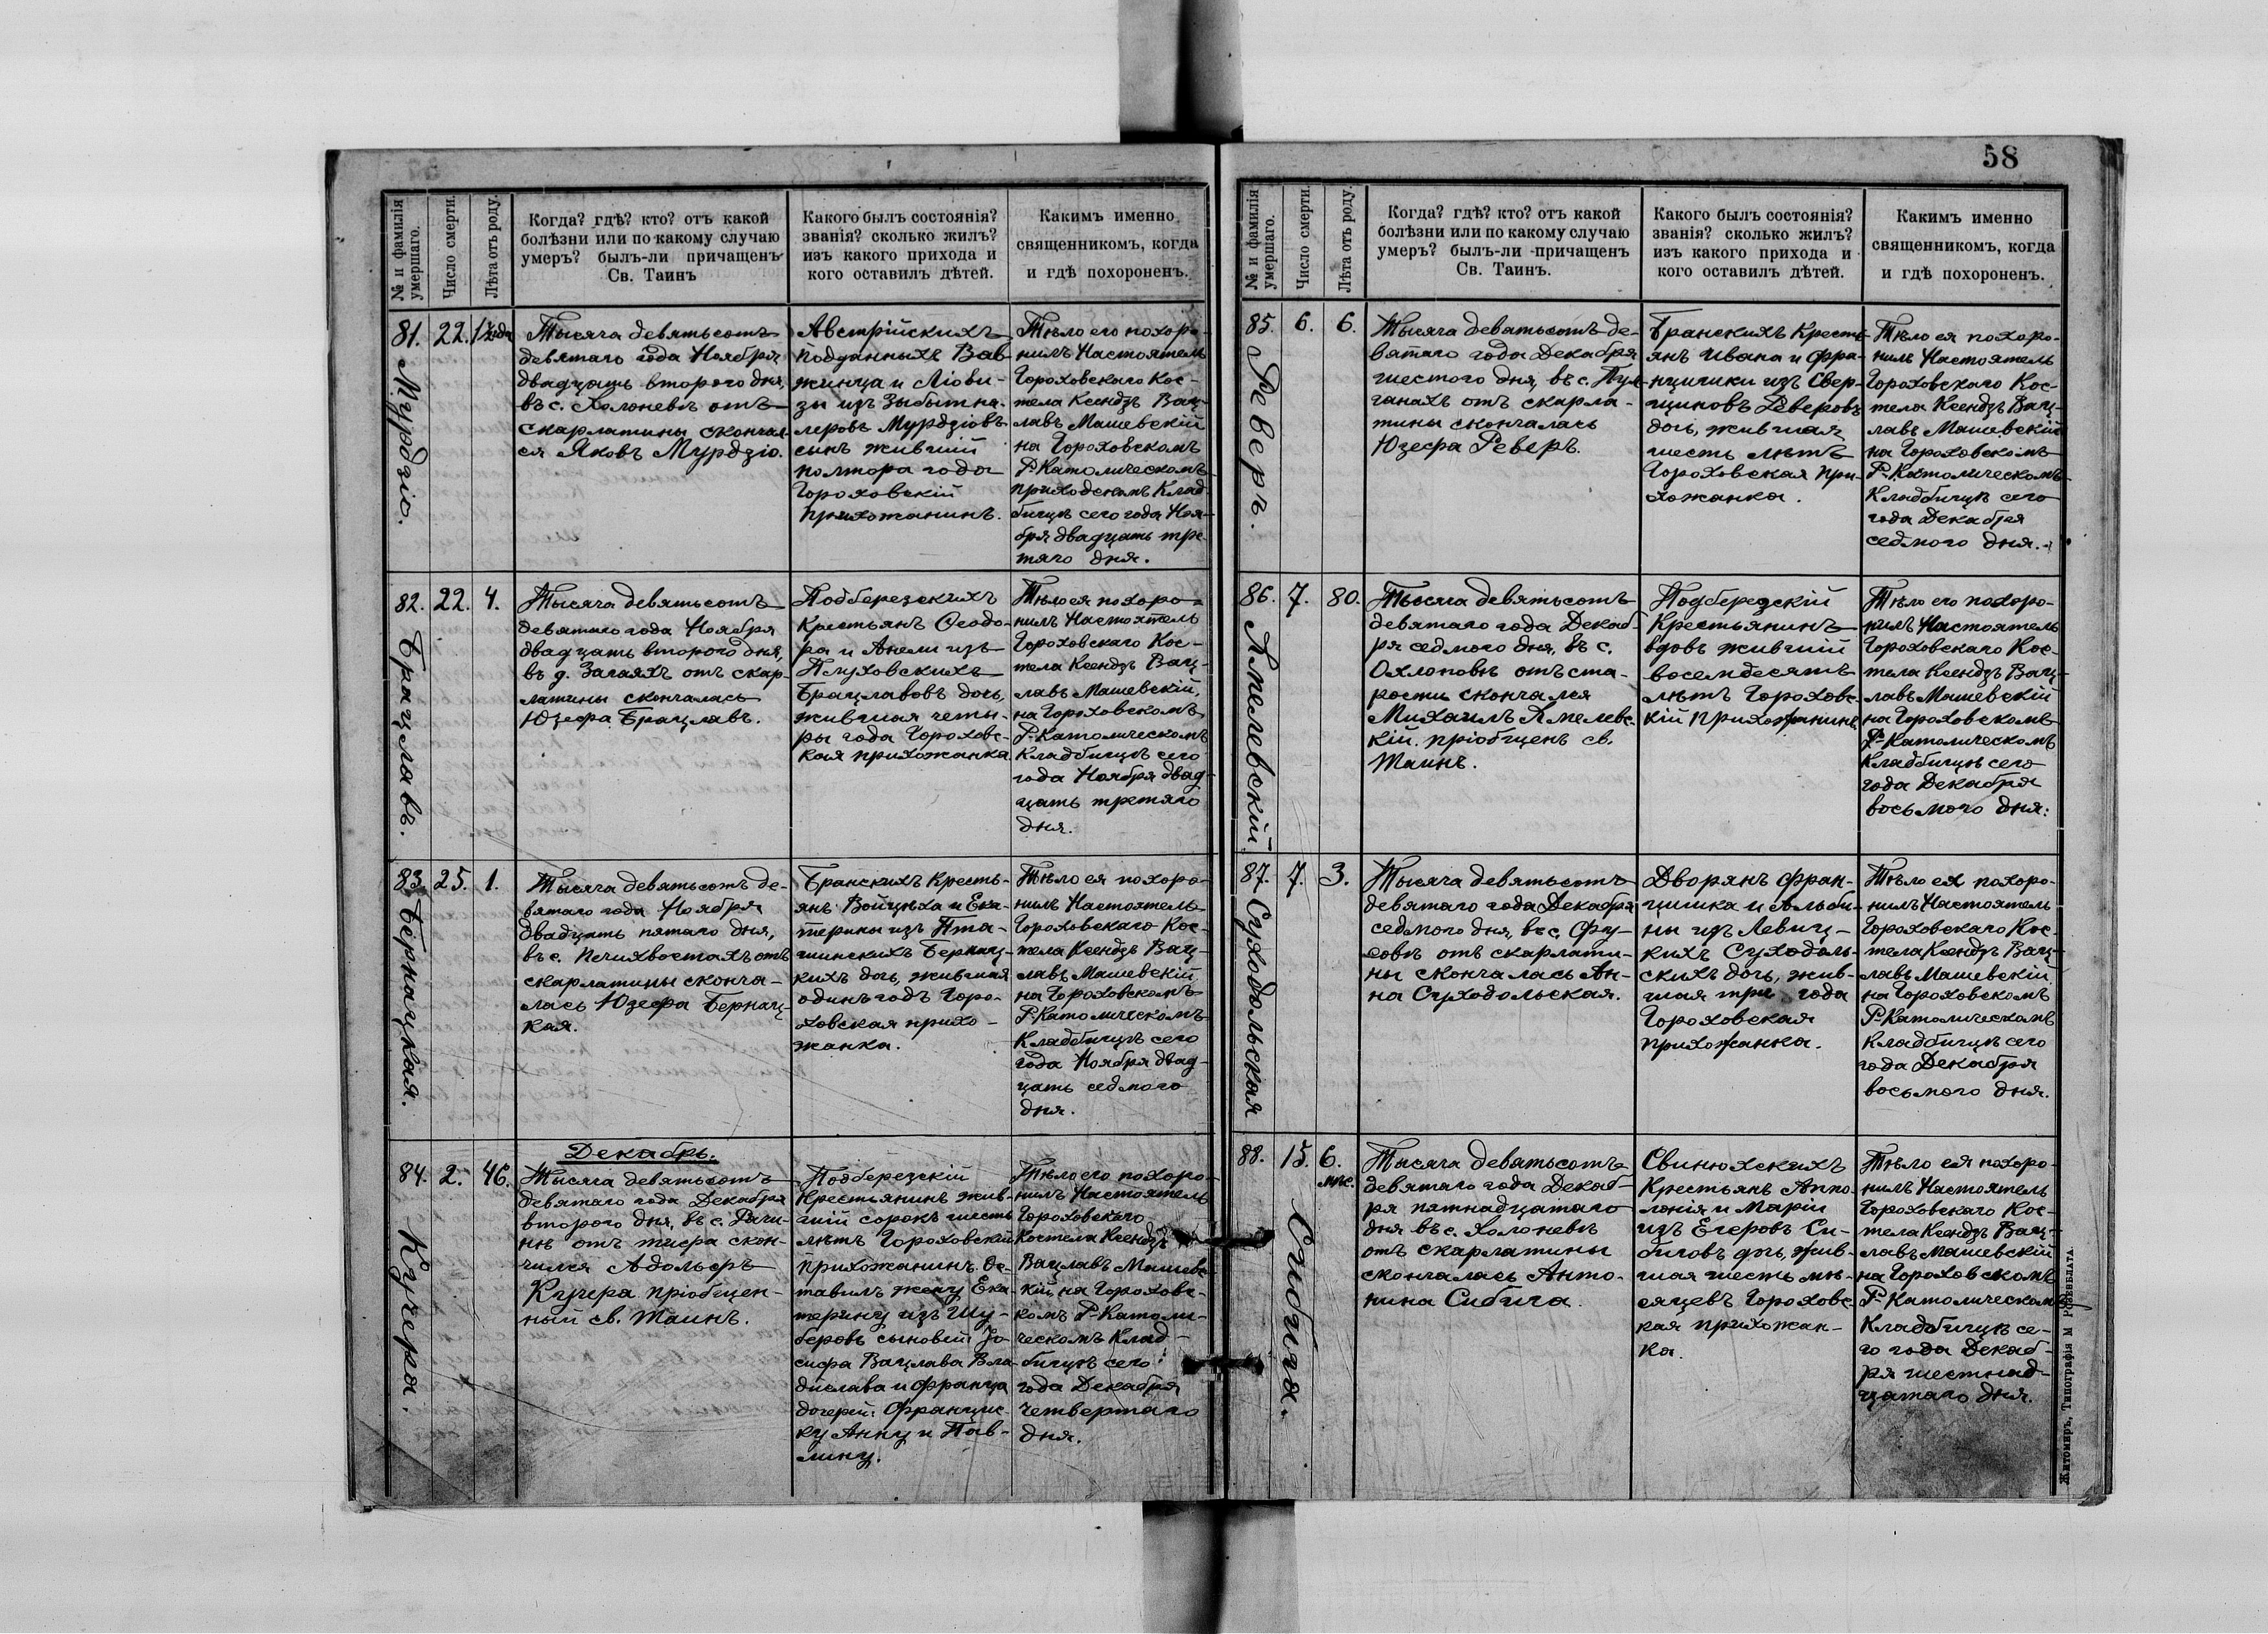 № и фамилія
умершаго.
Число смерти.
Лѣта отъ роду.
Когда? гдѣ? кто? отъ какой
болѣзни или по какому случаю
умеръ? былъ-ли причащенъ
Св. Таинъ
Какого былъ состоянія?
званія? сколько жилъ?
изъ какого прихода и
кого оставилъ дѣтей.
Какимъ именно
священникомъ, когда
и гдѣ похороненъ.
81.
Мурдзіо.
22.
1½ года
Тысяча девятьсотъ
девятаго года Ноября
двадцать второго дня,
въ с. Холоневѣ отъ
скарлатины скончал-
ся Яковъ Мурдзіо.
Австрійскихъ
подданныхъ Вав-
жинца и Людви-
зы изъ
Мурдзіовъ
сынъ жившій
полтора года
Гороховскій
прихожанинъ.
Тѣло его похоро-
нилъ Настоятель
Гороховскаго Кос-
тела Ксендзъ Вац-
лавъ Машевскій
на Гороховскомъ
Р-Католическомъ
приходскомъ Клад-
бищѣ сего года Ноя-
бря двадцать тре-
тяго дня.
82.
Брацлавъ.
22.
4.
Тысяча девятьсотъ
девятаго года Ноября
двадцать второго дня,
въ д. Загаяхъ отъ скар-
латины скончалась
Юзефа Брацлавъ.
Подберезскихъ
Крестьянъ Ѳеодо-
ра и Анели изъ
Глуховскихъ
Брацлавовъ дочь,
жившая четы-
ры года Гороховс-
кая прихожанка.
Тѣло ея похоро-
нилъ Настоятель
Гороховскаго Кос-
тела Ксендзъ Вац-
лавъ Машевскій,
на Гороховскомъ
Р-Католическомъ
Кладбищѣ сего
года Ноября двад-
цать третяго
дня.
83.
Бернацкая.
25.
1.
Тысяча девятьсотъ де-
вятаго года Ноября
двадцать пятаго дня,
въ с. Печихвостахъ отъ
скарлатины сконча-
лась Юзефа Бернац-
кая.
Бранскихъ Кресть-
янъ Войцѣха и Ека-
терины изъ Пта-
шинскихъ Бернац-
кихъ дочь, жившая
одинъ годъ Горо-
ховская прихо-
жанка.
Тѣло ея похоро-
нилъ Настоятель
Гороховскаго Кос-
тела Ксендзъ Вац-
лавъ Машевскій
на Гороховскомъ
Р-Католическомъ
Кладбищѣ сего
года Ноября двад-
цать седмого
дня.
Декабрь.
84.
Кучера.
2.
46.
Тысяча девятьсотъ
девятаго года Декабря
второго дня, въ с. Рачи-
нѣ отъ тифа скон-
чился Адольфъ
Кучера пріобщен-
ный св. Таинъ.
Подберезскій
Крестьянинъ жив-
шій сорокъ шесть
лѣтъ Гороховскій
прихожанинъ. Ос-
тавилъ жену Ека-
терину изъ Шу-
беровъ сыновей Іо-
сифа Вацлава Вла-
дислава и Франца
дочерей: Францис-
ку Анну и Пав-
лину.
Тѣло его похоро-
нилъ Настоятель
Гороховскаго
Костела Ксендзъ
Вацлавъ Машевс-
кій, на Гороховс-
комъ Р-Католи-
ческомъ Клад-
бищѣ сего
года Декабря
четвертаго
дня.
58
№ и фамилія
умершаго.
Число смерти.
Лѣта отъ роду.
Когда? гдѣ? кто? отъ какой
болѣзни или по какому случаю
умеръ? былъ-ли причащенъ
Св. Таинъ.
Какого былъ состоянія?
званія? сколько жилъ?
изъ какого прихода и
кого оставилъ дѣтей.
Какимъ именно
священникомъ, когда
и гдѣ похороненъ.
85.
Реверъ.
6.
6.
Тысяча девятьсотъ де-
вятаго года Декабря
шестого дня, въ с. Пул-
ганахъ отъ скарла-
тины скончалась
Юзефа Реверъ.
Бранскихъ Кресть-
янъ Ивана и Фра-
нцишки изъ Свер-
щиковъ Реверовъ
дочь, жившая
шесть лѣтъ
Гороховская при-
хожанка.
Тѣло ея похоро-
нилъ Настоятель
Гороховскаго Кос-
тела Ксендзъ Вац-
лавъ Машевскій
на Гороховскомъ
Р-Католическомъ
Кладбищѣ сего
года Декабря
седмого дня.
86.
Хмелевскій.
7.
80.
Тысяча девятьсотъ
девятаго года Декаб-
ря седмого дня, въ с.
Охлоповѣ отъ ста-
рости скончался
Михаилъ Хмелевс-
кій. пріобщенъ св.
Таинъ.
Подберезскій
Крестьянинъ
вдовъ жившій
восемдесятъ
лѣтъ Гороховс-
кій прихожанинъ
Тѣло его похоро-
нилъ Настоятель
Гороховскаго Кос-
тела Ксендзъ Вац-
лавъ Машевскій
на Гороховскомъ
Р-Католическомъ
Кладбищѣ сего
года Декабря
восьмого дня.
87.
Суходольская
7.
3.
Тысяча девятьсотъ
девятаго года Декабря
седмого дня, въ с. Фу-
совѣ отъ скарлати-
ны скончалась Ан-
на Суходольская.
Дворянъ Фран-
цишка и Альби-
ны изъ Левиц-
кихъ Суходоль-
скихъ дочь, жив-
шая три года
Гороховская
прихожанка.
Тѣло ея похоро-
нилъ Настоятель
Гороховскаго Кос-
тела Ксендзъ Вац-
лавъ Машевскій
на Гороховскомъ
Р-Католическомъ
Кладбищѣ сего
года Декабря
восьмого дня.
88.
Сибига.
15.
6.
мѣс.
Тысяча девятьсотъ
девятаго года Декаб-
ря пятнадцатаго
дня въ с. Холоневѣ
отъ скарлатины
скончалась Анто-
нина Сибига.
Свинюхскихъ
Крестьянъ Аппо-
лонія и Маріи
изъ Егеровъ Си-
биговъ дочь, жив-
шая шесть мѣ-
сяцевъ Гороховс-
кая прихожан-
ка.
Тѣло ея похоро-
нилъ Настоятель
Гороховскаго Кос-
тела Ксендзъ Вац-
лавъ Машевскій
на Гороховскомъ
Р-Католическомъ
Кладбищѣ се-
го года Декаб-
ря шестнад-
цатаго дня.
Житомиръ, Типографія М Розенблата